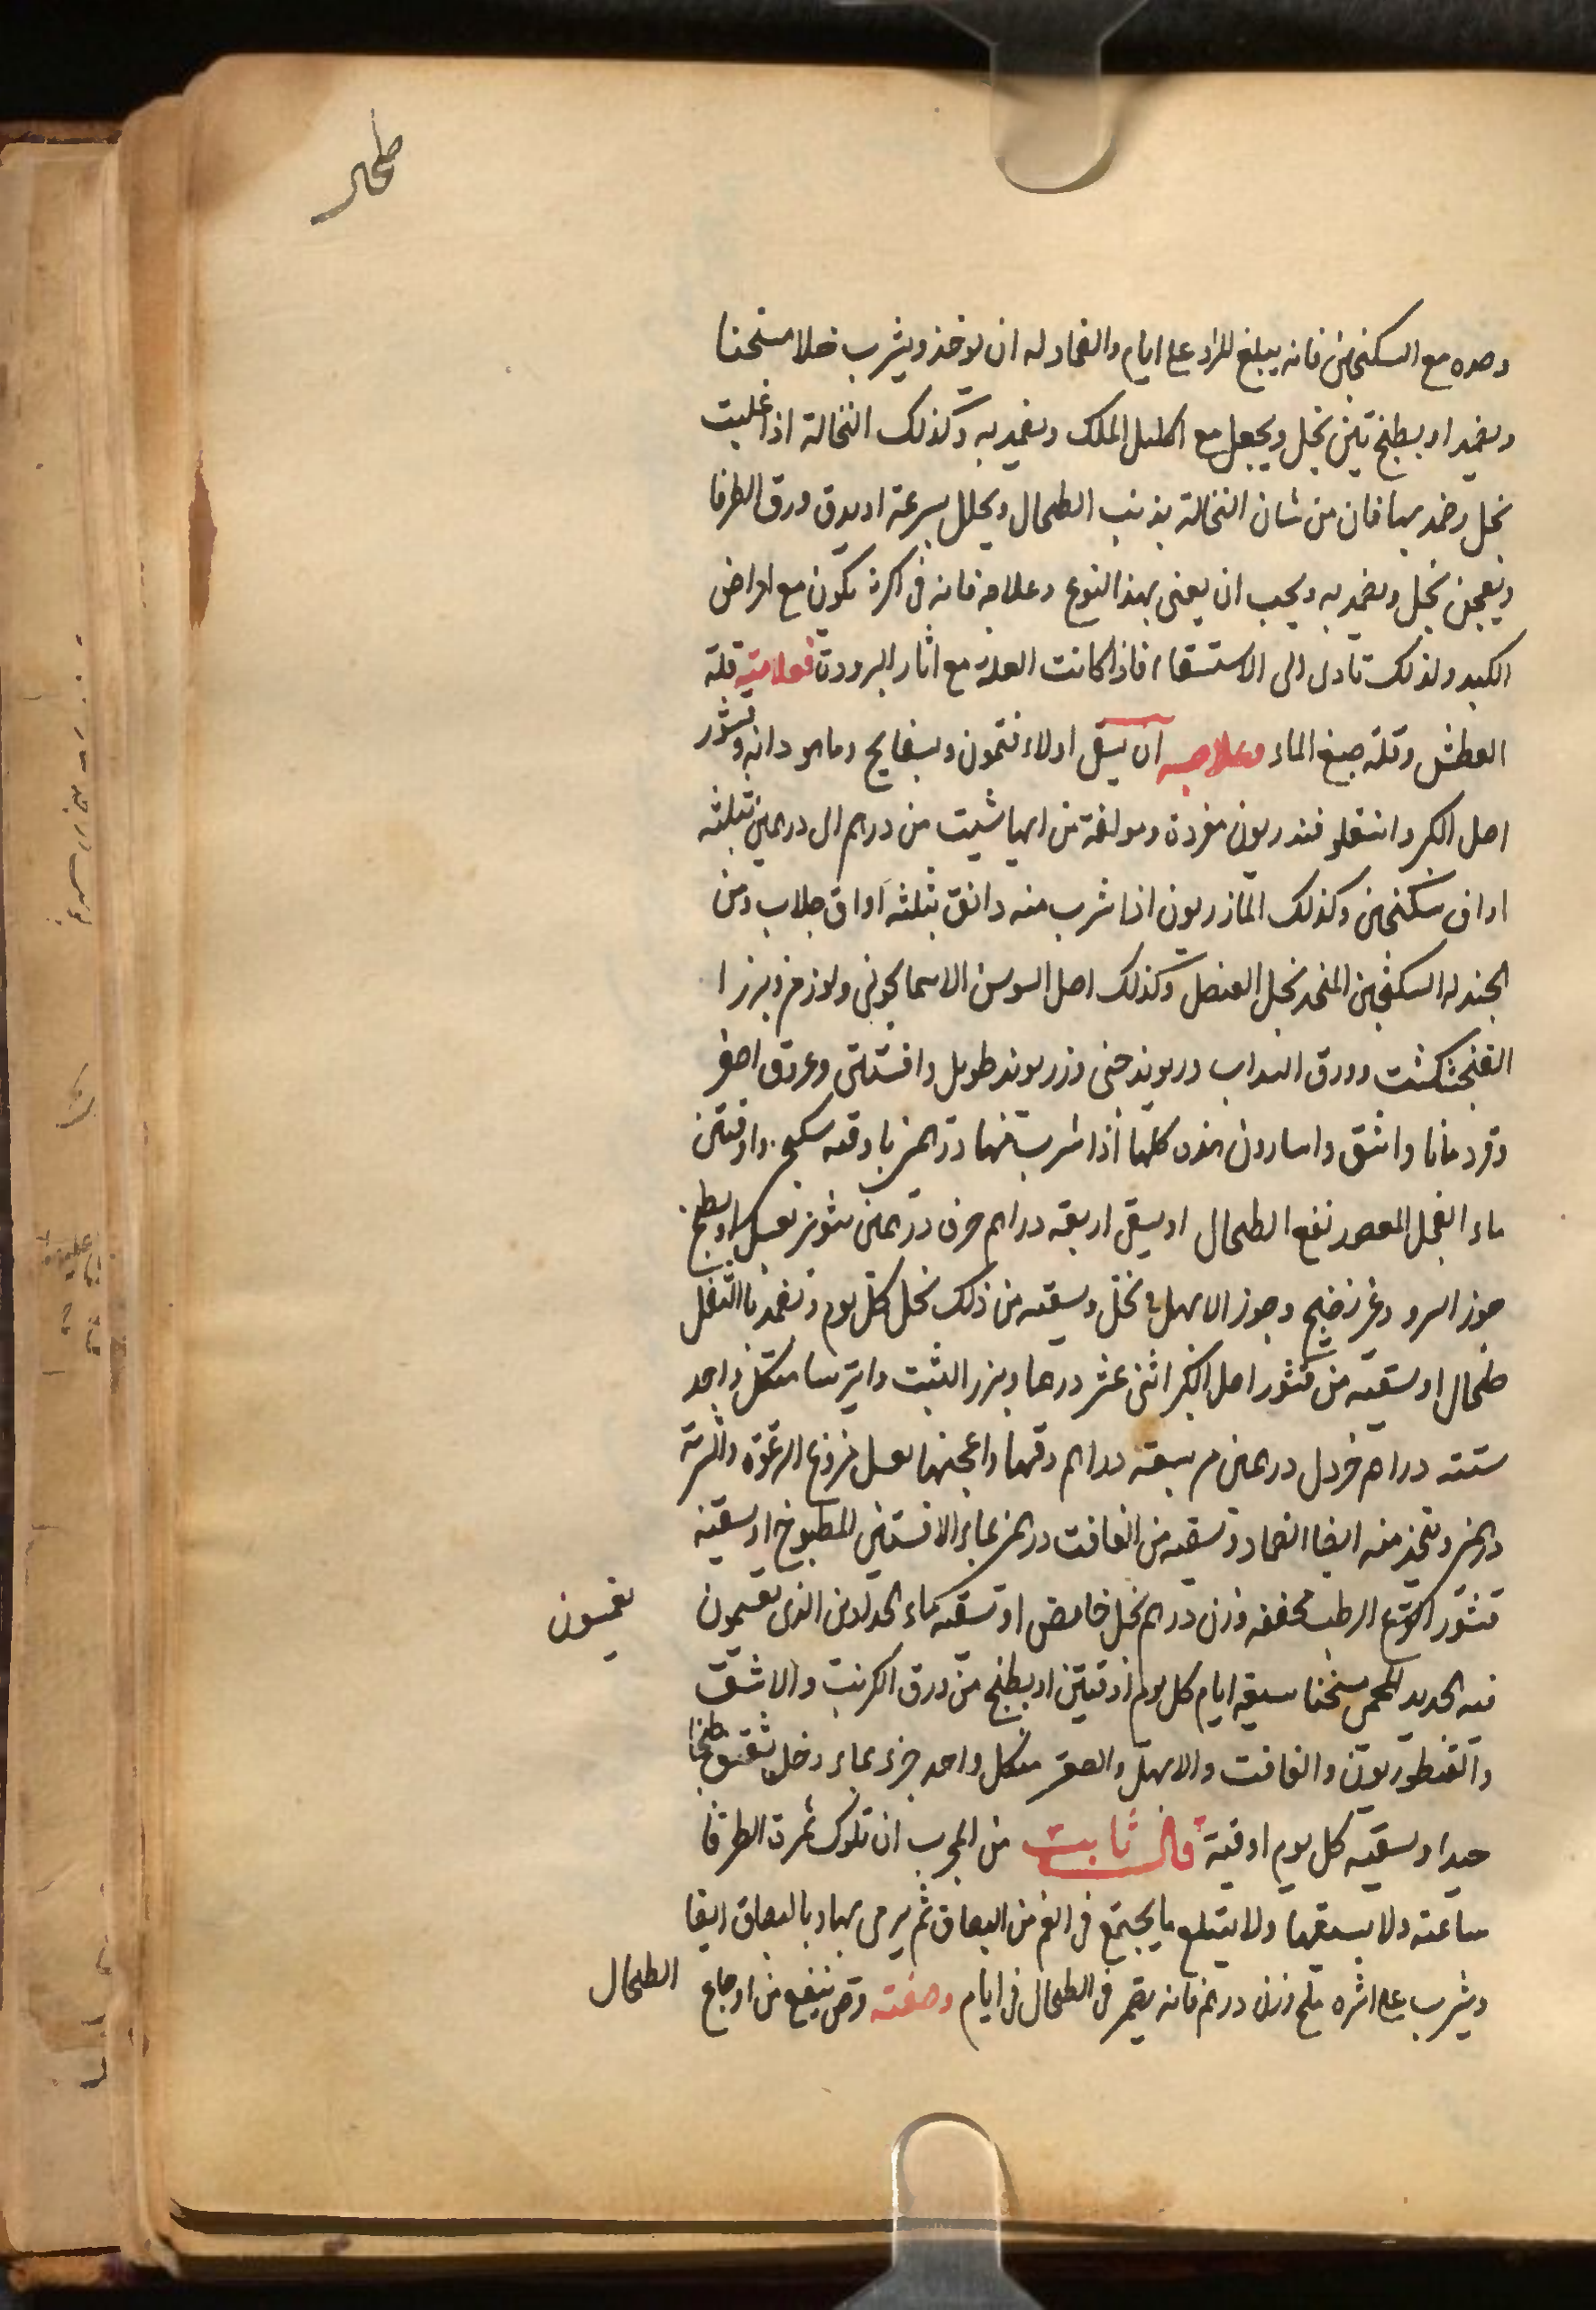 طحال
وحده مع السكنجبين فانه يبلغ المراد على ايام والضماد له ان يوخذ ويشرب خلا مسخنا
ويضمد او يطبخ تين بخل ويجعل مع اكليل الملك ويضمد به وكذلك النخالة اذا غليت
بخل وضمد بها فان من شان النخالة يذيب الطحال ويحلل بسرعة او يدق ورق الطرفا
ويعجن بخل ويضمد به ويجب ان يعنى بهذا النوع وعلاجه فانه في اكثره يكون مع امراض
الكبد ولذلك تادى الى الاستسقاء فاذا كانت العلة مع اثار البرودة فعلامته قلة
العطش وقلة صبغ الماء وعلاجه ان يسقى اولا افتمون وبسفايج وماهودانه وقشور
اصل الكبر واسقلوفندريون مفردة ومولفة من ايها شيت من درهم الى درهمين بثلثه
اواق سكنجبين وكذلك المازريون اذا شرب منه دانق بثلثه اواق جلاب ومن
الجيد له السكنجبين المتخذ بخل العنصل وكذلك اصل السوسن الاسمانجوني ولوز مر وبزر ا
الفنجنكشت وورق السداب وريوند صيني وزريوند طويل وافسنتين وعروق اصفر
وقردمانا واشق واسارون هذه كلها اذا شرب منها درهمين باوقيه سكنج واوقيتين
ماء الفجل المعصور نفع الطحال او يسقى اربعة دراهم حرف درهمين شونيز بعسل او يطبخ
جوز السرو وغير نضيج وجوز الابهل بخل ويسقيه من ذلك بخل كل يوم وتضمد بالثفل
طحال او يسقيه من قشور اصل الكبر اثنى عشر درهما وبزر الشبت وايرسا من كل واحد
ستته دراهم خردل درهمين مر سبعة دراهم دقها واعجنها بعسل منزوع الرغوة والشربة
درهمين ويتخذ منه ايضا الضماد وتسقيه من الغافت درهمين بماء الافسنتين المطبوخ او يسقيه
قشور القرع الرطب مجففه وزن درهم بخل حامض او تسقيه ماء الحدادين الذي يغمسون
يغمسون
فيه الحديد المحمى سخنا سبعة ايام كل يوم اوقيتين او يطبخ من ورق الكرنب والاشق
والقنطوريون والغافت والابهل والصعتر من كل واحد جزء بماء وخل ثقيف طبخا
جيدا ويسقيه كل يوم اوقية قال ثابت من المجرب ان تلوك ثمرة الطرفا
ساعته ولا يسقها ولا يبتلع ما يجتمع في الفم من البصاق ثم يرمى بها وبالبصاق ايضا
ويشرب على اثره ملح وزن درهم فانه يضمر في الطحال في ايام وصفته قرص ينفع من اوجاع
الطحال